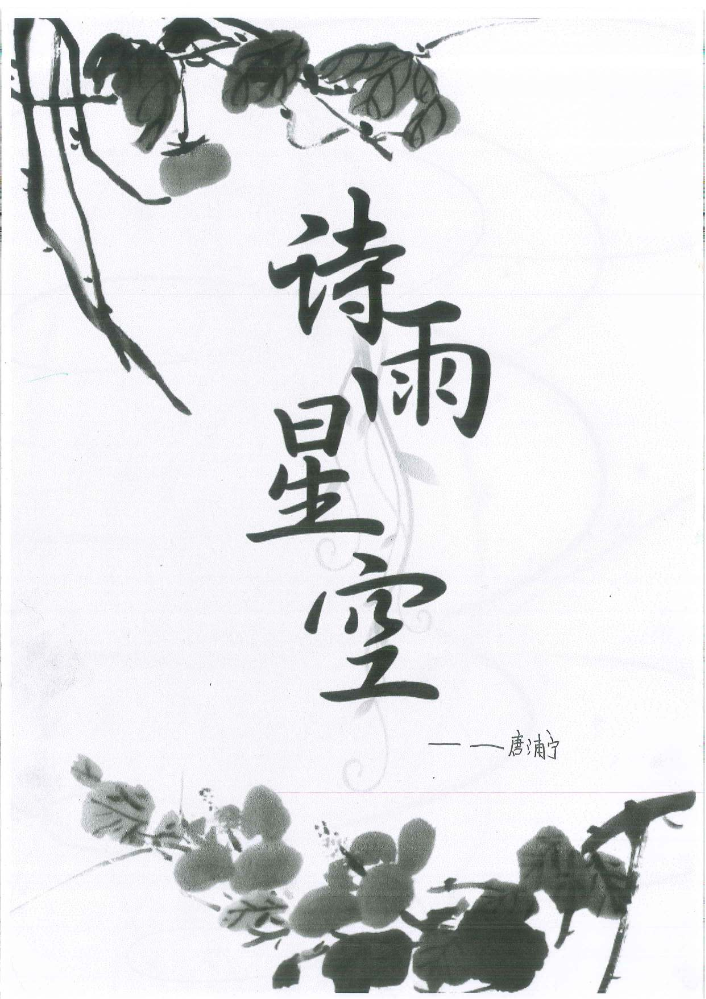 诗雨星空
——唐浦宁